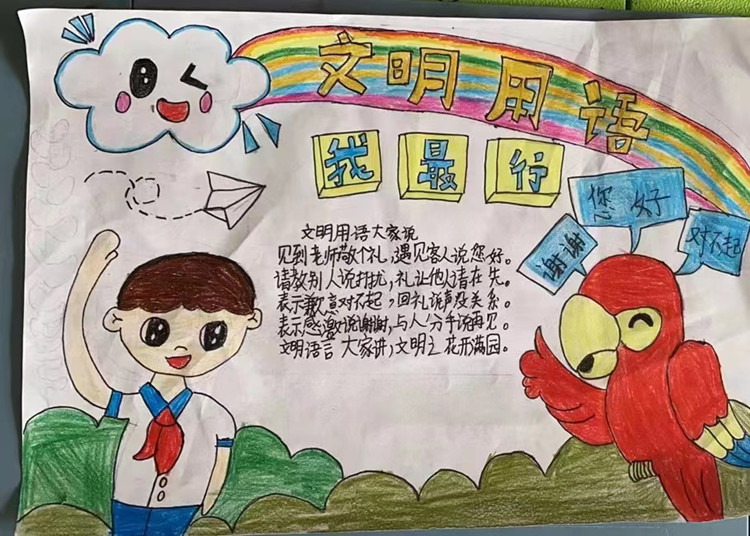 文明用语
我最行
谢谢
您好
对不起
文明用语大家说
见到老师敬个礼,遇见客人说您好。
请教别人说打扰,礼让他人请在先。
表示歉意对不起,回礼说声没关系。
表示感激说谢谢,与人分手说再见。
文明语言大家讲,文明之花形满园。